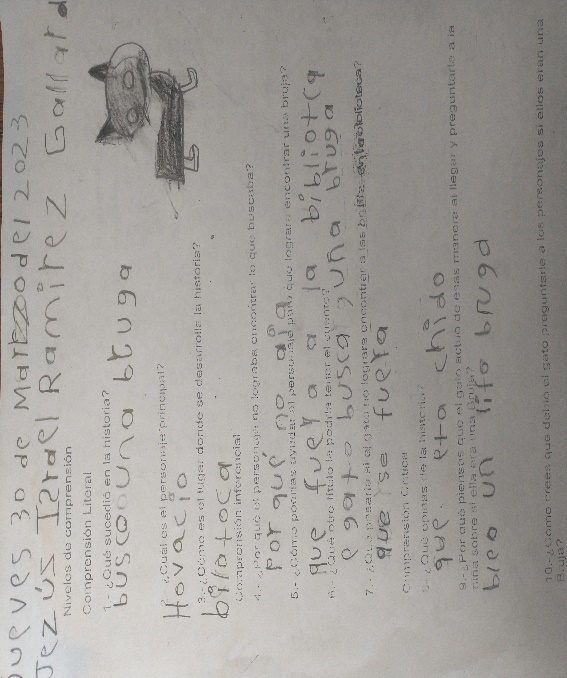 Jueves 30 de Marzo del 2023
Jezús Izrael Ramírez Gallard
Niveles de comprensión
Comprensión Literal
1.- ¿Qué sucedió en la historia?
buscoouna bruga
¿Cuál es el personaje principal?
Hovacio
3.- ¿Cómo es el lugar donde se desarrolla la historia?
bilatoca
Comprensión inferencial
4.- ¿Por qué el personaje no lograba encontrar lo que buscaba?
por que no aia
5.- ¿Cómo podrías ayudar al personaje para que logrará encontrar una bruja?
que fuera a la bibliotca
6.- ¿Qué otro título le podría tener el cuento?
egato busca guña bruga
7.- ¿Qué pasaría si el gato no lograra encontrar a las
que se fuera
Comprensión Crítica
8.- ¿Qué opinas de la historia?
que eta chido
9.- ¿Por qué piensas que el gato actuó de esas manera al llegar y preguntarle a la
niña sobre si ella era una bruja?
bieo un lifo brugd
10.- ¿Cómo crees que debió el gato preguntarle a los personajes si ellos eran una
Bruja?